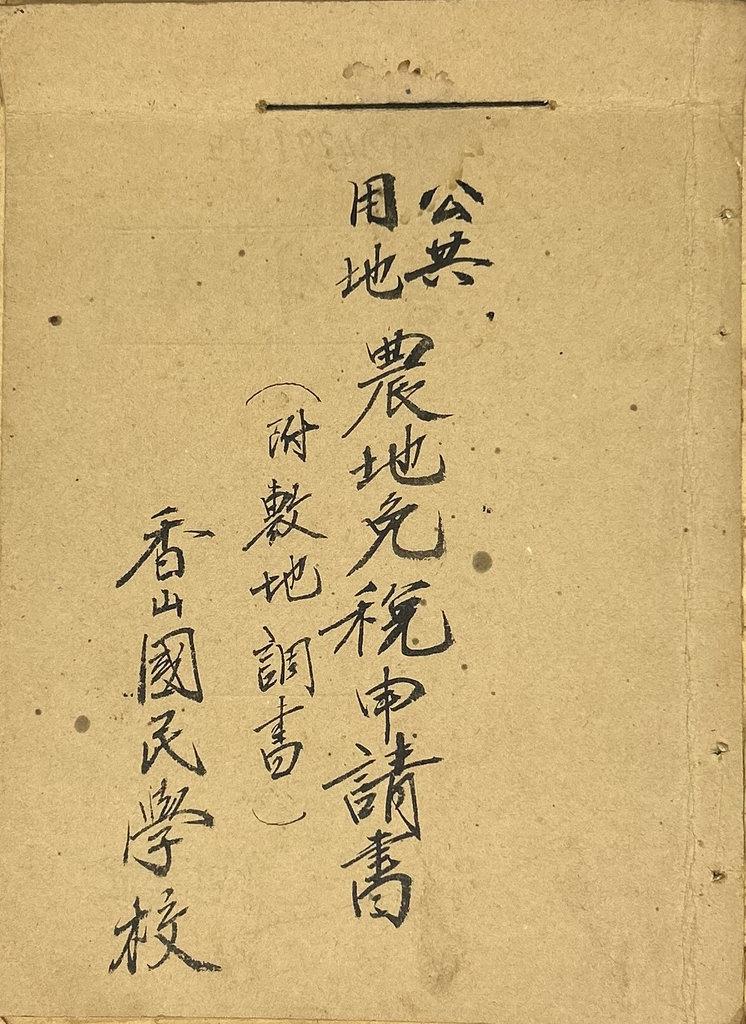 公共
用地
農地免税申請書
（附敷地調書）
香山國民學校